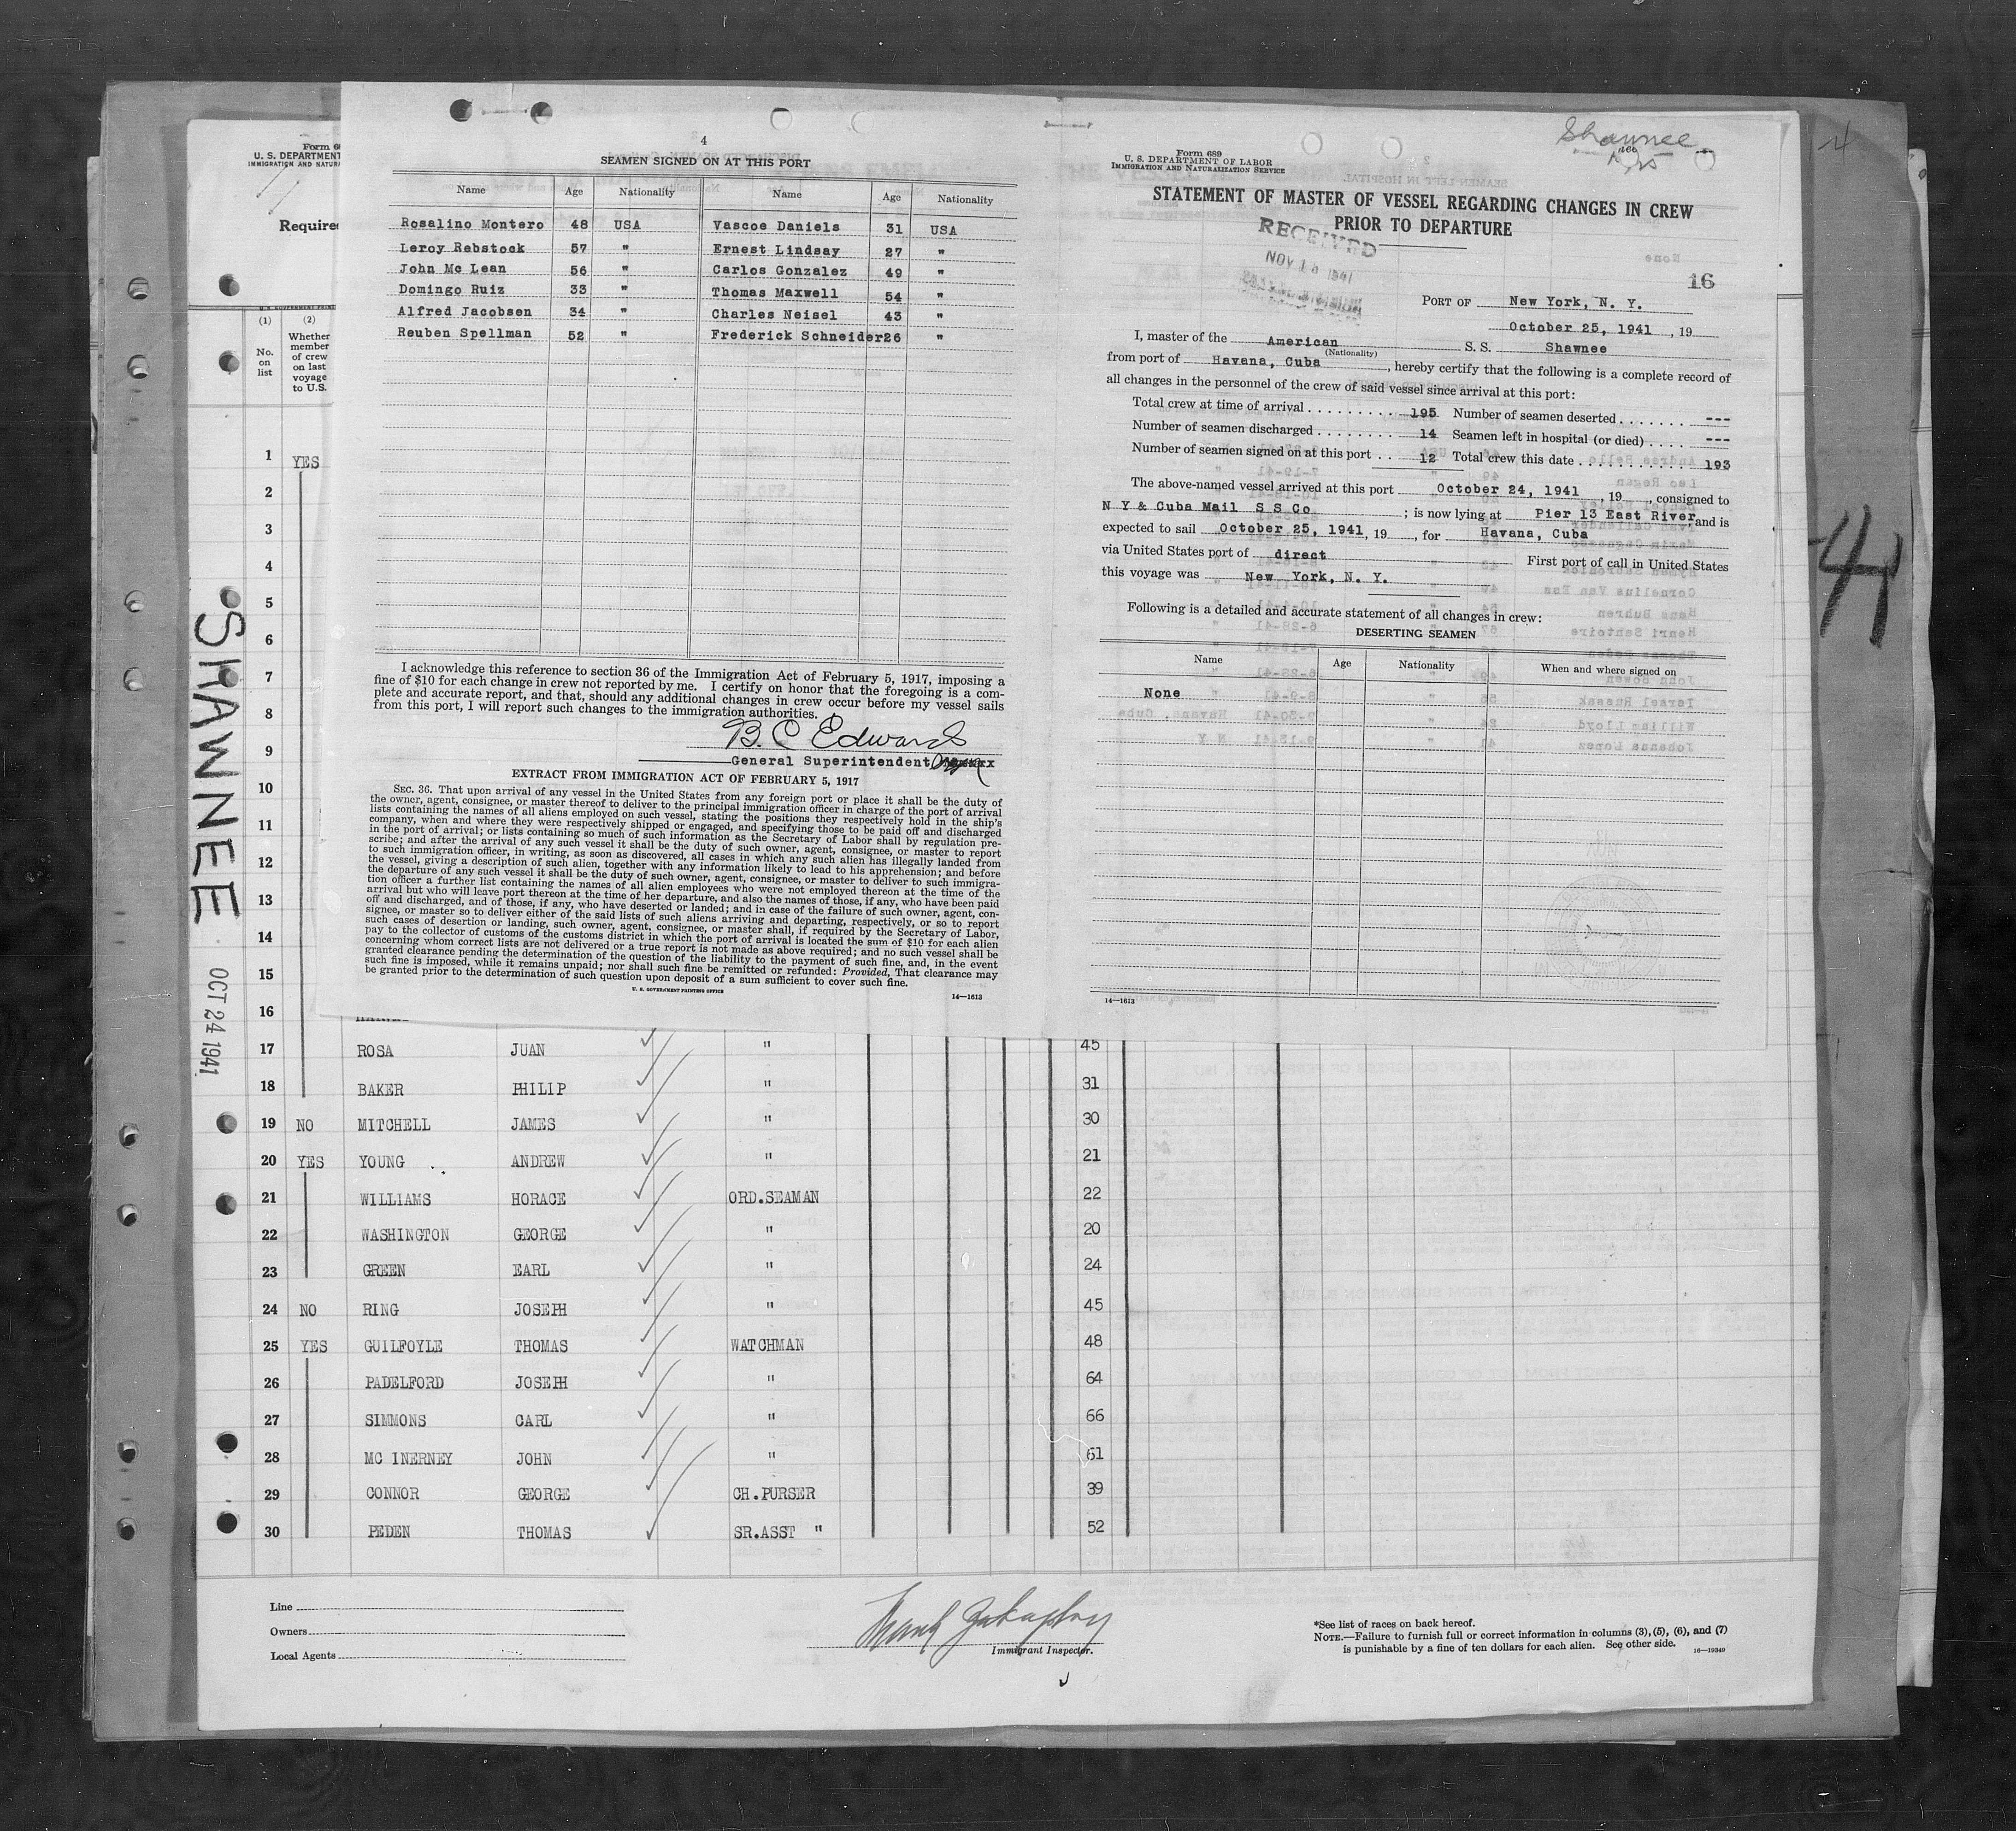 Form 6
U. S. DEPARTMENT
IMMIGRATION AND NATUR
Require
(1) (2)
No. on list
Whether member of crew on last voyage to U.S.
SHAWNEE
OCT 24 1941
4
SEAMEN SIGNED ON AT THIS PORT
Name Age Nationality Name Age Nationality
Rosalino Montero 48 USA Vascoe Daniels 31 USA
Leroy Rebstock 57 " Ernest Lindsay 27 "
John Mc Lean 56 " Carlos Gonzalez 49 "
Domingo Ruiz 33 " Thomas Maxwell 54 "
Alfred Jacobsen 34 " Charles Neisel 43 "
Reuben Spellman 52 " Frederick Schneider 26 "
I acknowledge this reference to section 36 of the Immigration Act of February 5, 1917, imposing a
fine of $10 for each change in crew not reported by me. I certify on honor that the foregoing is a com-
plete and accurate report, and that, should any additional changes in crew occur before my vessel sails
from this port, I will report such changes to the immigration authorities.
B. C Edwards
General Superintendent
EXTRACT FROM IMMIGRATION ACT OF FEBRUARY 5, 1917
SEC. 36. That upon arrival of any vessel in the United States from any foreign port or place it shall be the duty of
the owner, agent, consignee, or master thereof to deliver to the principal immigration officer in charge of the port of arrival
lists containing the names of all aliens employed on such vessel, stating the positions they respectively hold in the ship's
company, when and where they were respectively shipped or engaged, and specifying those to be paid off and discharged
in the port of arrival; or lists containing so much of such information as the Secretary of Labor shall by regulation pre-
scribe; and after the arrival of any such vessel it shall be the duty of such owner, agent, consignee, or master to report
to such immigration officer, in writing, as soon as discovered, all cases in which any such alien has illegally landed from
the vessel, giving a description of such alien, together with any information likely to lead to his apprehension; and before
the departure of any such vessel it shall be the duty of such owner, agent, consignee, or master to deliver to such immigra-
tion officer a further list containing the names of all alien employees who were not employed thereon at the time of the
arrival but who will leave port thereon at the time of her departure, and also the names of those, if any, who have been paid
off and discharged, and of those, if any, who have deserted or landed; and in case of the failure of such owner, agent, con-
signee, or master so to deliver either of the said lists of such aliens arriving and departing, respectively, or so to report
such cases of desertion or landing, such owner, agent, consignee, or master shall, if required by the Secretary of Labor,
pay to the collector of customs of the customs district in which the port of arrival is located the sum of $10 for each alien
concerning whom correct lists are not delivered or a true report is not made as above required; and no such vessel shall be
granted clearance pending the determination of the question of the liability to the payment of such fine, and, in the event
such fine is imposed, while it remains unpaid; nor shall such fine be remitted or refunded: Provided, That clearance may
be granted prior to the determination of such question upon deposit of a sum sufficient to cover such fine.
U. S. GOVERNMENT PRINTING OFFICE 14—1613
Shawnee
Form 689
U. S. DEPARTMENT OF LABOR
IMMIGRATION AND NATURALIZATION SERVICE
STATEMENT OF MASTER OF VESSEL REGARDING CHANGES IN CREW
PRIOR TO DEPARTURE
RECEIVED
NOV 1 1941
16
PORT OF New York, N. Y.
October 25, 1941, 19
I, master of the American S. S. Shawnee
(Nationality)
from port of Havana, Cuba, hereby certify that the following is a complete record of
all changes in the personnel of the crew of said vessel since arrival at this port:
Total crew at time of arrival 195 Number of seamen deserted ---
Number of seamen discharged 14 Seamen left in hospital (or died) ---
Number of seamen signed on at this port 12 Total crew this date 193
The above-named vessel arrived at this port October 24, 1941, 19, consigned to
N Y & Cuba Mail S S Co; is now lying at Pier 13 East River, and is
expected to sail October 25, 1941, 19, for Havana, Cuba
via United States port of direct First port of call in United States
this voyage was New York, N. Y.
Following is a detailed and accurate statement of all changes in crew:
DESERTING SEAMEN
Name Age Nationality When and where signed on
None
14—1613
4
41
1 YES
2
3
4
5
6
7
8
9
10
11
12
13
14
15
16
17 ROSA JUAN " 45
18 BAKER PHILIP " 31
19 NO MITCHELL JAMES " 30
20 YES YOUNG ANDREW " 21
21 WILLIAMS HORACE ORD.SEAMAN 22
22 WASHINGTON GEORGE " 20
23 GREEN EARL " 24
24 NO RING JOSEPH " 45
25 YES GUILFOYLE THOMAS WATCHMAN 48
26 PADELFORD JOSEPH " 64
27 SIMMONS CARL " 66
28 MC INERNEY JOHN " 61
29 CONNOR GEORGE CH.PURSER 39
30 PEDEN THOMAS SR.ASST " 52
Line
Owners
Local Agents
Immigrant Inspector.
*See list of races on back hereof.
NOTE.—Failure to furnish full or correct information in columns (3), (5), (6), and (7)
is punishable by a fine of ten dollars for each alien. See other side. 16—19349